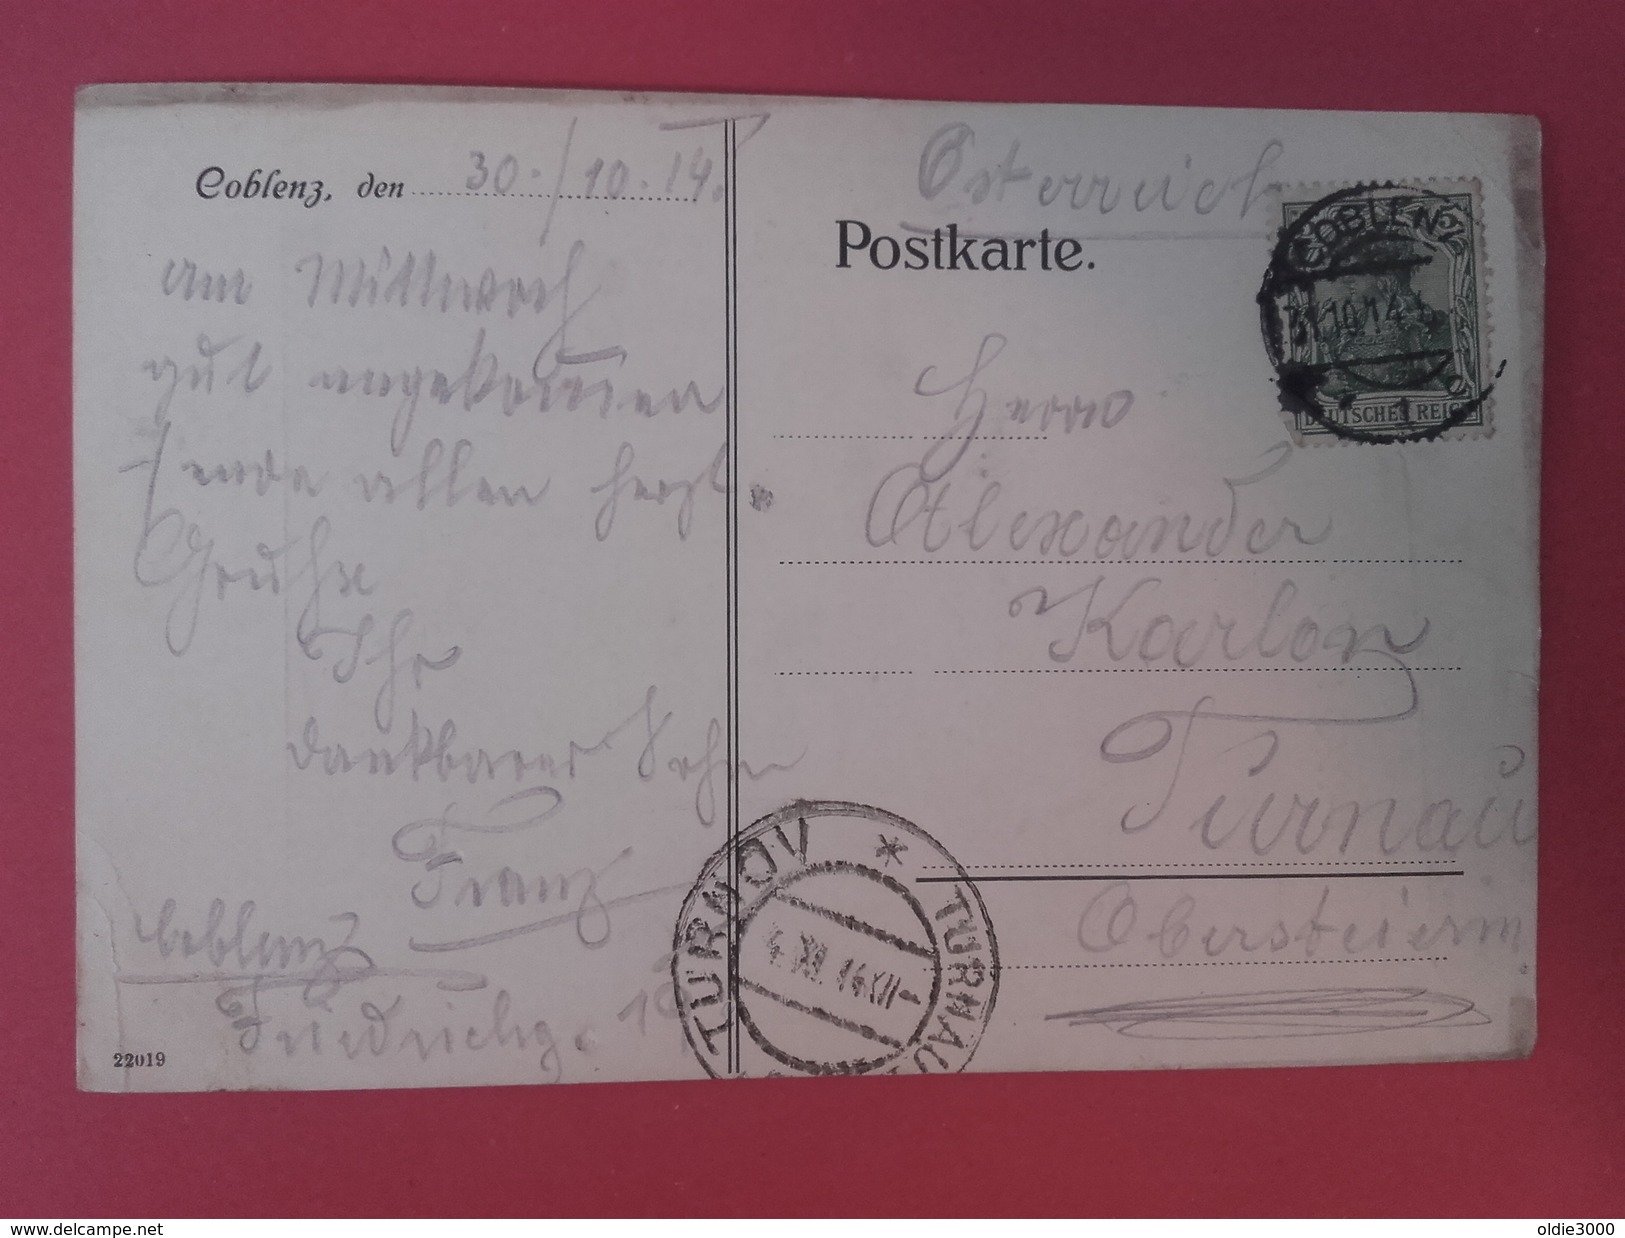 Coblenz, den 30./10.14.
Am Mittwoch
gut angekommen
sende allen herzl.
Grüße
Ihr
dankbarer Sohn
Franz
Coblenz
Friedrichg.
22019
Österreich
Postkarte.
COBLENZ
31.10.14
1
DEUTSCHES REICH
Herrn
Alexander
Karlon
Turnau
Obersteierm
TURNOV * TURNAU
4. XI. 14
www.delcampe.net
oldie3000